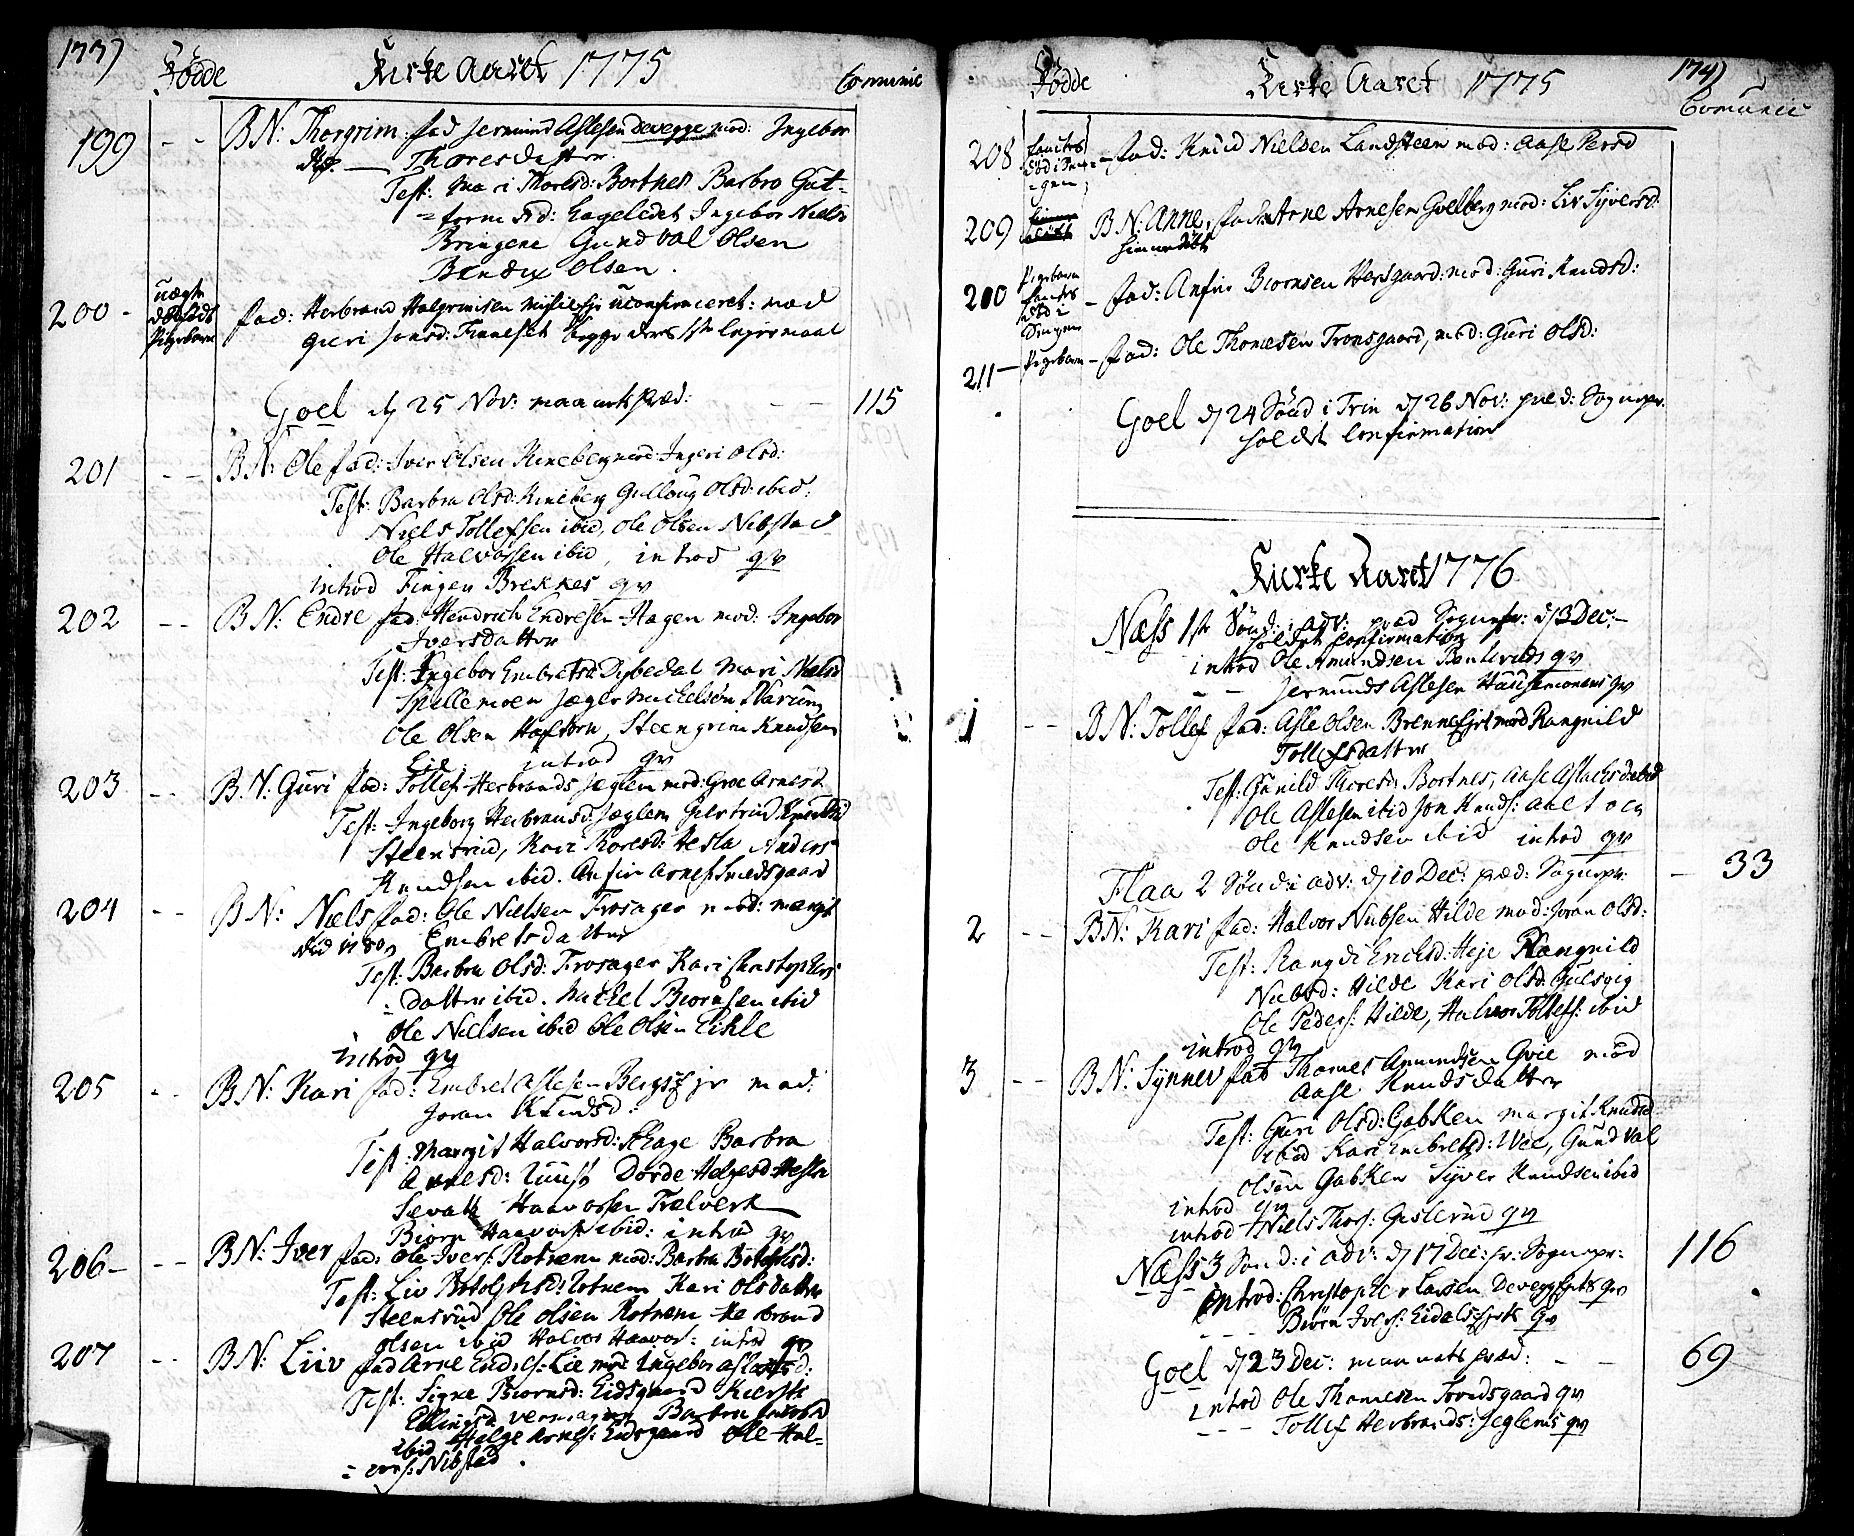 173)
Fødde
Kirke Aaret 1775
Comunic
199 - - BN: Thorgrim. fad Jermund Aslesen Devegge mod: Ingebor
Thoresdatter.
Test: Mari Thoresd: Bortnes Barbro Gut-
=formsd: Hageledet Ingebor Niels
Bringene Gundval Olsen
Bendix Olsen.
200 - uægte dødføds Pigebarn fad: Herbrand Halgrimsen uconfirmeret: mod
Guri Jonsd: Finneset begge deres 1ste Leyermaal
Goel d 25 Nov: maanets præd: - - 115
201 - - BN: Ole fad: Iver Olsen Kineberg mod: Ingeri Olsd:
Test: Barbra Olsd: Kineberg Gulloug Olsd: ibid:
Niels Tollefsen ibid, Ole Olsen Nibstad
Ole Halvorsen ibid, introd qv
introd Finger Brekkes qv
202 - - BN: Endre fad: Hendrich Endresen Hagen mod: Ingebor
Iversdatter
Test: Ingebor Embretsd Dybedal Mari Nielsd
Spillemoen Jæger Michelsøn Skarum
Ole Olsen Haftorn, Steengrim Knudsen
Eie. introd qv
203 - - B.N. Guri fad: Tollef Herbrands Jæglem mod: Groe Arnesd
Test: Ingeborg Herbransd: Jæglem Giertrud Knudsd
Steensrud, Kari Toresd: Hesla Anders
Knudsen ibid. Anfin Arnes: Trudsgaard
204 - - BN: Niels fad: Ole Nielsen Frosager mod: Margit
død 1780 Embretsdatter
Test: Barbra Olsd: Frosager Kari Christophers
=datter ibid. Michel Biørnsen ibid
Ole Nielsen ibid Ole Olsen Eikle
introd qv
205 - - BN: Kari fad: Embret Aslesen Bergsejr mod:
Joran Knudsd:
Test: Margit Halvorsd: Hage Barbra
Arnesd: Dorde Helgesd Hesla
Sevat Haavorsen Trælverk
Biørn Haavors: ibid: introd qv
206 - - - BN: Iver fad: Ole Ivers: Rotnem mod: Barbra Botolfsd:
Test: Liv Botolfsd: Rotnem Kari Olsdatter
Steensrud Ole Olsen Rotnem Herbrand
Olsen ibid Halvor Haavor: introd qv
207 - - BN: Liiv fad Arne Endres: Lie mod Ingebor Aslachsd:
Test: Signe Biørnsd: Eidsgaard Kiersti
Ellingsd Barbra Jacobsd
ibid Helge Arnes: Eidsgaard Ole Hal=
=vors: Nibstad.
174)
Fødde
Kirke Aaret 1775
Comunic
208 - fad: Knud Nielsen Landsteen mod: Aase Persd
209 BN: Anne, fad: Arne Arnesen Golberg mod: Liv Syversd:
hiemedøbt
210 Pigebarn - fad: Anfin Biørnsen Hersgaard: mod: Guri Knudsd:
211 - Pigebarn - fad: Ole Thomesen Tronsgaard, mod: Guri Olsd:
Goel d 24 Sønd i Trin d 26 Nov: præd: Sognepr.
holdet Confirmation
Kirke Aaret 1776
Næss 1ste Sønd: i adv: præd Sognepr: d 3 Dec: -
holdet confirmation
introd Ole Amundsen Benteruds qv
- - Jermunds Aslesen qv
1 - - BN: Tollef fad: Asle Olsen Brennesejret mod Rangnild
Tollefsdatter
Test: Gunild Thoresd: Bortnes, Aase Aslachsd: ibid
Ole Aslesen ibid Jon Knuds:
Ole Knudsen ibid introd qv
Flaa 2 Sønd i adv: d 10 Dec: præd: Sognepr: - 33
2 - - BN: Kari fad: Halvor Nubsen Hilde mod: Joran Olsd:
Test: Rangdi Erichsd: Heje Rangnild
Nubsd: Hilde Kari Olsd: Gulsvig
Ole Peders: Hilde, Halvor Tollefs: ibid
introd qv
3 - - BN: Synnev fad Thomes Amundsen Gvie mod
Aase Knudsdatter
Test: Guri Olsd: Gabken Margit Knudsd
ibid Kari Embretsd: Wee, Gundval
Olsen Gabken Syver Knudsen ibid
introd qv
introd Niels Thors: Gislerud qv
Næss 3 Sønd: i adv: d 17 Dec: pr: Sognepr: 116
introd: Christopher Larsen Deveggesejets qv
- - - Biørn Ivers: Eidalssejets qv
Goel d 23 Dec: maanets præd: - - 69
introd Ole Thomesen Trondsgaard qv
- - - Tollef Herbrands: Jeglems qv